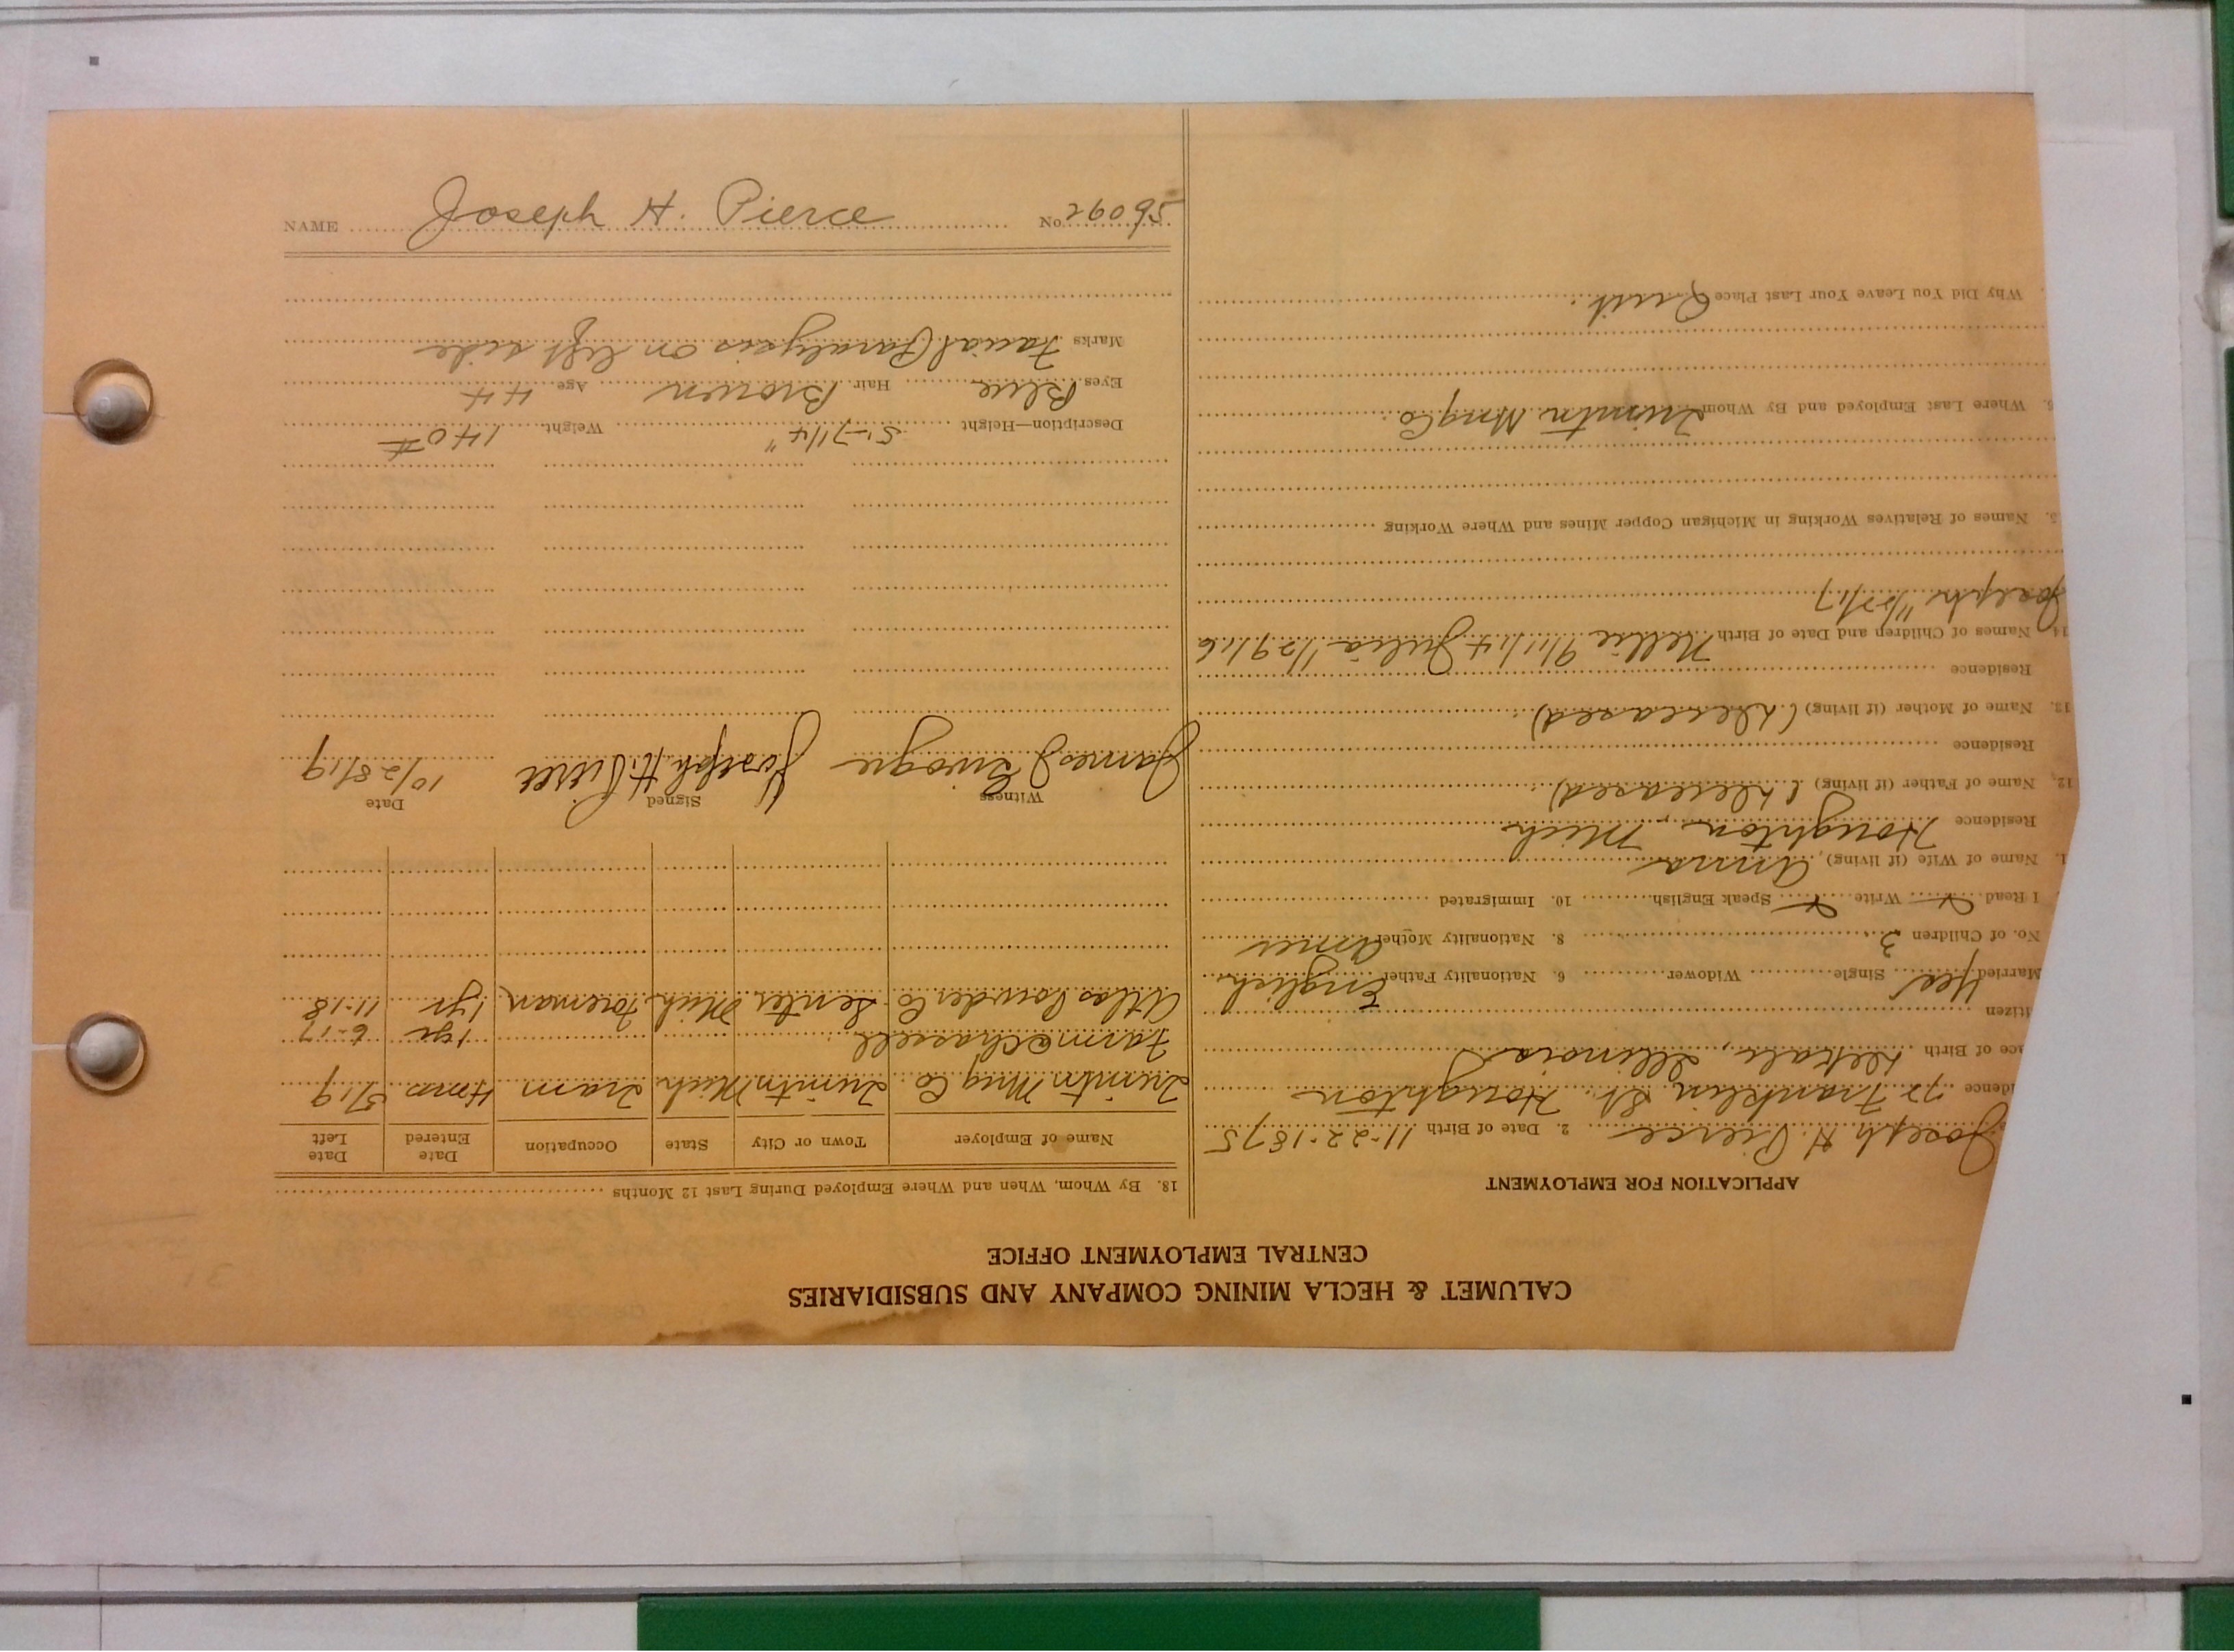 CALUMET & HECLA MINING COMPANY AND SUBSIDIARIES
CENTRAL EMPLOYMENT OFFICE
APPLICATION FOR EMPLOYMENT
Joseph H. Pierce 2. Date of Birth 11-22-1875
idence 77 Franklin St. Houghton
ace of Birth DeKalb, Illinois
itizen
Married Yes Single Widower 6. Nationality Father English
No. of Children 3 8. Nationality Mother Amer
I Read Write Speak English 10. Immigrated
1. Name of Wife (if living) Anna
Residence Houghton, Mich
12. Name of Father (if living) (Deceased)
Residence
13. Name of Mother (if living) (Deceased)
Residence
14. Names of Children and Date of Birth Nellie 9/11/14 Julia 1/29/16
Joseph 11/27/17
5. Names of Relatives Working in Michigan Copper Mines and Where Working
6. Where Last Employed and By Whom Trimtn Mng Co.
Why Did You Leave Your Last Place Quit.
18. By Whom, When and Where Employed During Last 12 Months
Name of Employer Town or City State Occupation Date Entered Date Left
Trimtn Mng Co. Trimtn Mich Tram 4 mos 5/19
Farm @ Chassell 1 yr 6-17
Atlas Powder Co. Senter Mich Foreman 1 yr 11-18
Witness Signed Date
James J. Joseph H. Pierce 10/28/19
Description—Height 5'-7 1/4" Weight 140#
Eyes Blue Hair Brown Age 44
Marks Facial Paralysis on left side
NAME Joseph H. Pierce No. 26095